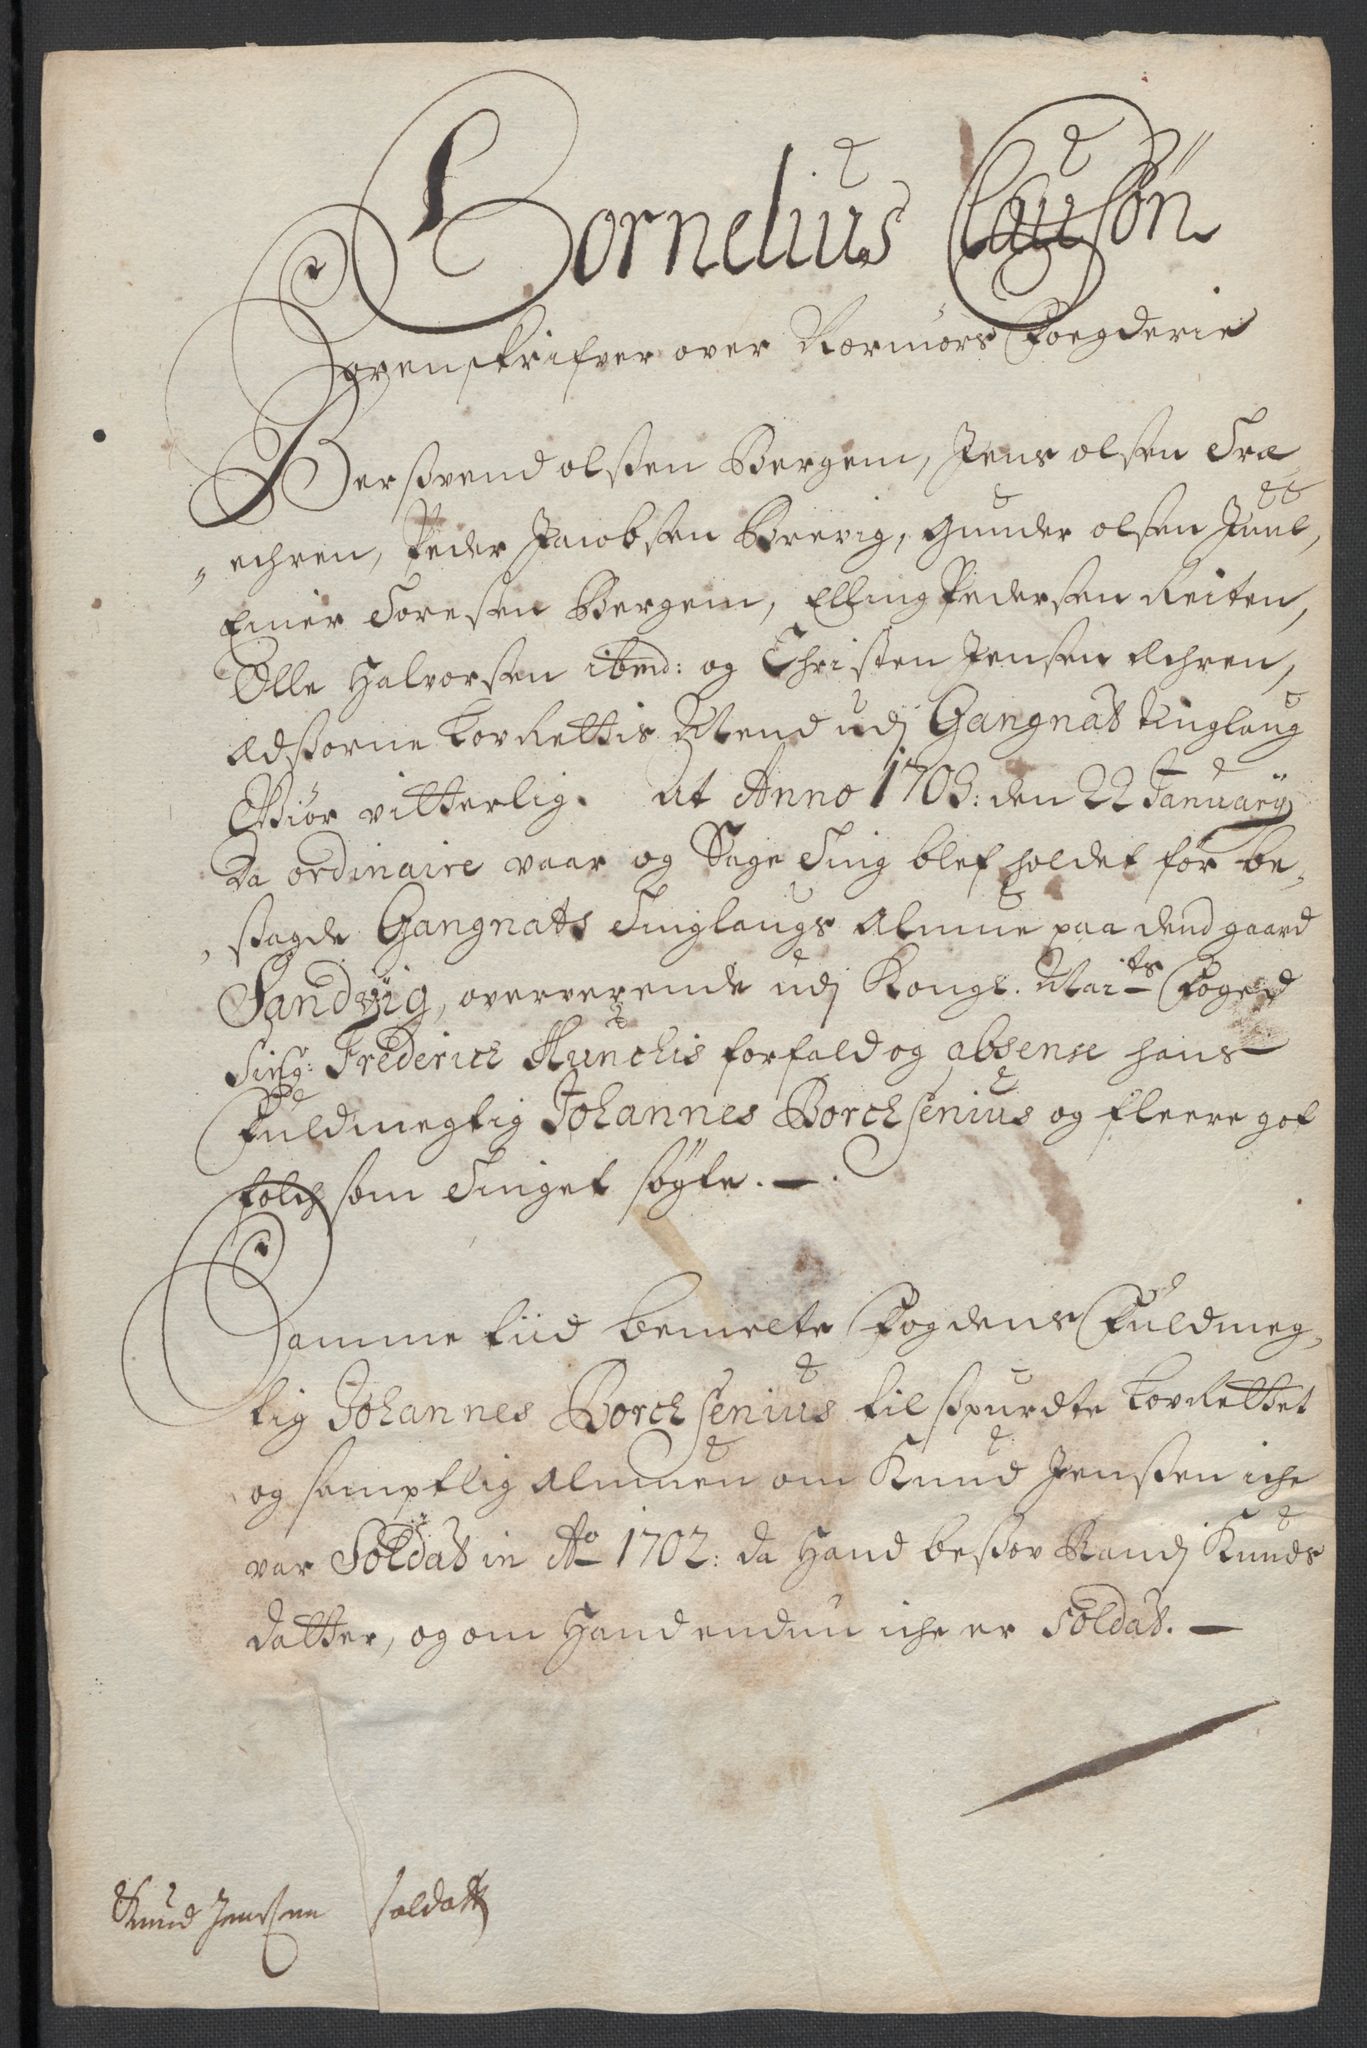 Cornelius Clausøn
Sorenskrifver over Normørs Foegderie
Bersvend olsen Bergem, Jens olsen Træ
echren, Peder Jacobsen Brevig, Gunder olsen Juul,
Einer Toresen Bergem, Elling Pedersen Reiten,
Olle Halvorsen ibmd: og Christen Jensen Æchren,
Edsorne LovRettis Mend udj Gangnat tinglaug
Giør vitterlig. At Anno 1703: den 22 January
da ordinaire vaar og Sage Ting blef holdet for be-
sagde Gangnats Tinglaugs Almue paa dend gaard
Sandvig, oververende udj Kongl. Maits Foged
Sirg: Frederich Munchis forfald og absense hans
Fuldmegtig Johannes Borchsenius og fleere got
folch som Tinget søgte.
Samme tiid bemelte Fogdens Fuldmeg-
tig Johannes Borchsenius tilspurdte LovRettet
og samptlig Almuen om Knud Jensen iche
var Soldat in Ao 1702: da Hand besov Randj Knuds
datter, og om Hand endnu iche er Soldat.
Knud Jensen soldatt